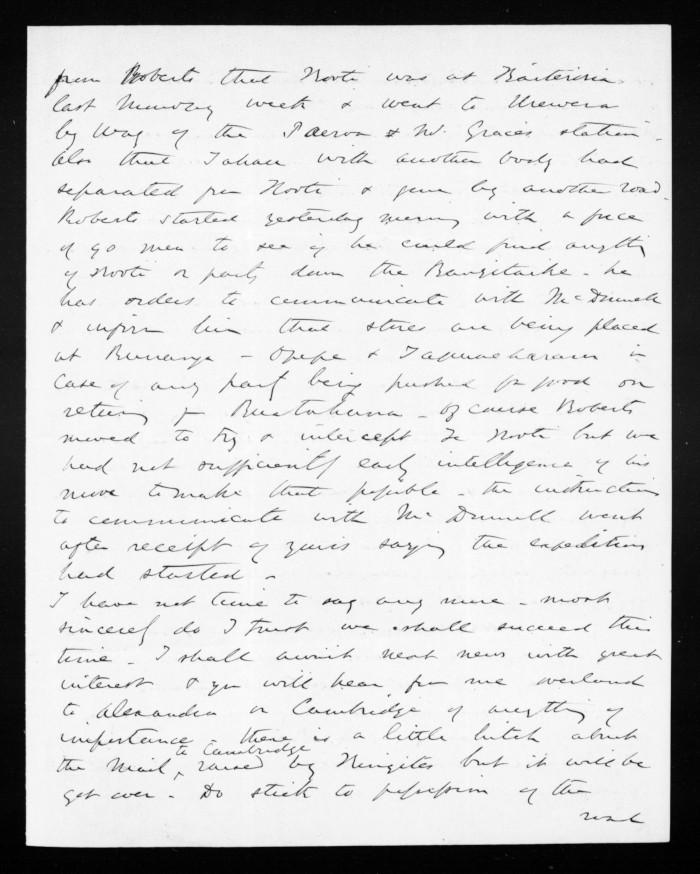 from Roberts that Kooti was at
last Monday week & went to Urewera
by way of the Paeroa & Mr. Graces station -
also that Tahau with another body had
separated from Kooti & gone by another road.
Roberts started yesterday morning with a force
of 90 men to see if he could find anything
of Kooti or party down the Rangitaike - he
has orders to communicate with McDonnell
& inform him that stores are being placed
at Runanga - Opepe & in
case of any party being pushed for food on
returning fr Ruatahuna - of course Roberts
moved to try & intercept Te Kooti but we
had not sufficiently early intelligence of his
move to make that possible - the instructions
to communicate with McDonnell went
after receipt of yours saying the expedition
had started -
I have not time to say any more - most
sincerely do I trust we shall succeed this
time - I shall await next news with great
interest & you will hear from me overland
to Alexandra or Cambridge of anything of
importance - there is a little hitch about
the Mail to Cambridge, raised by Kingites but it will be
got over - Do stick to possession of the
road